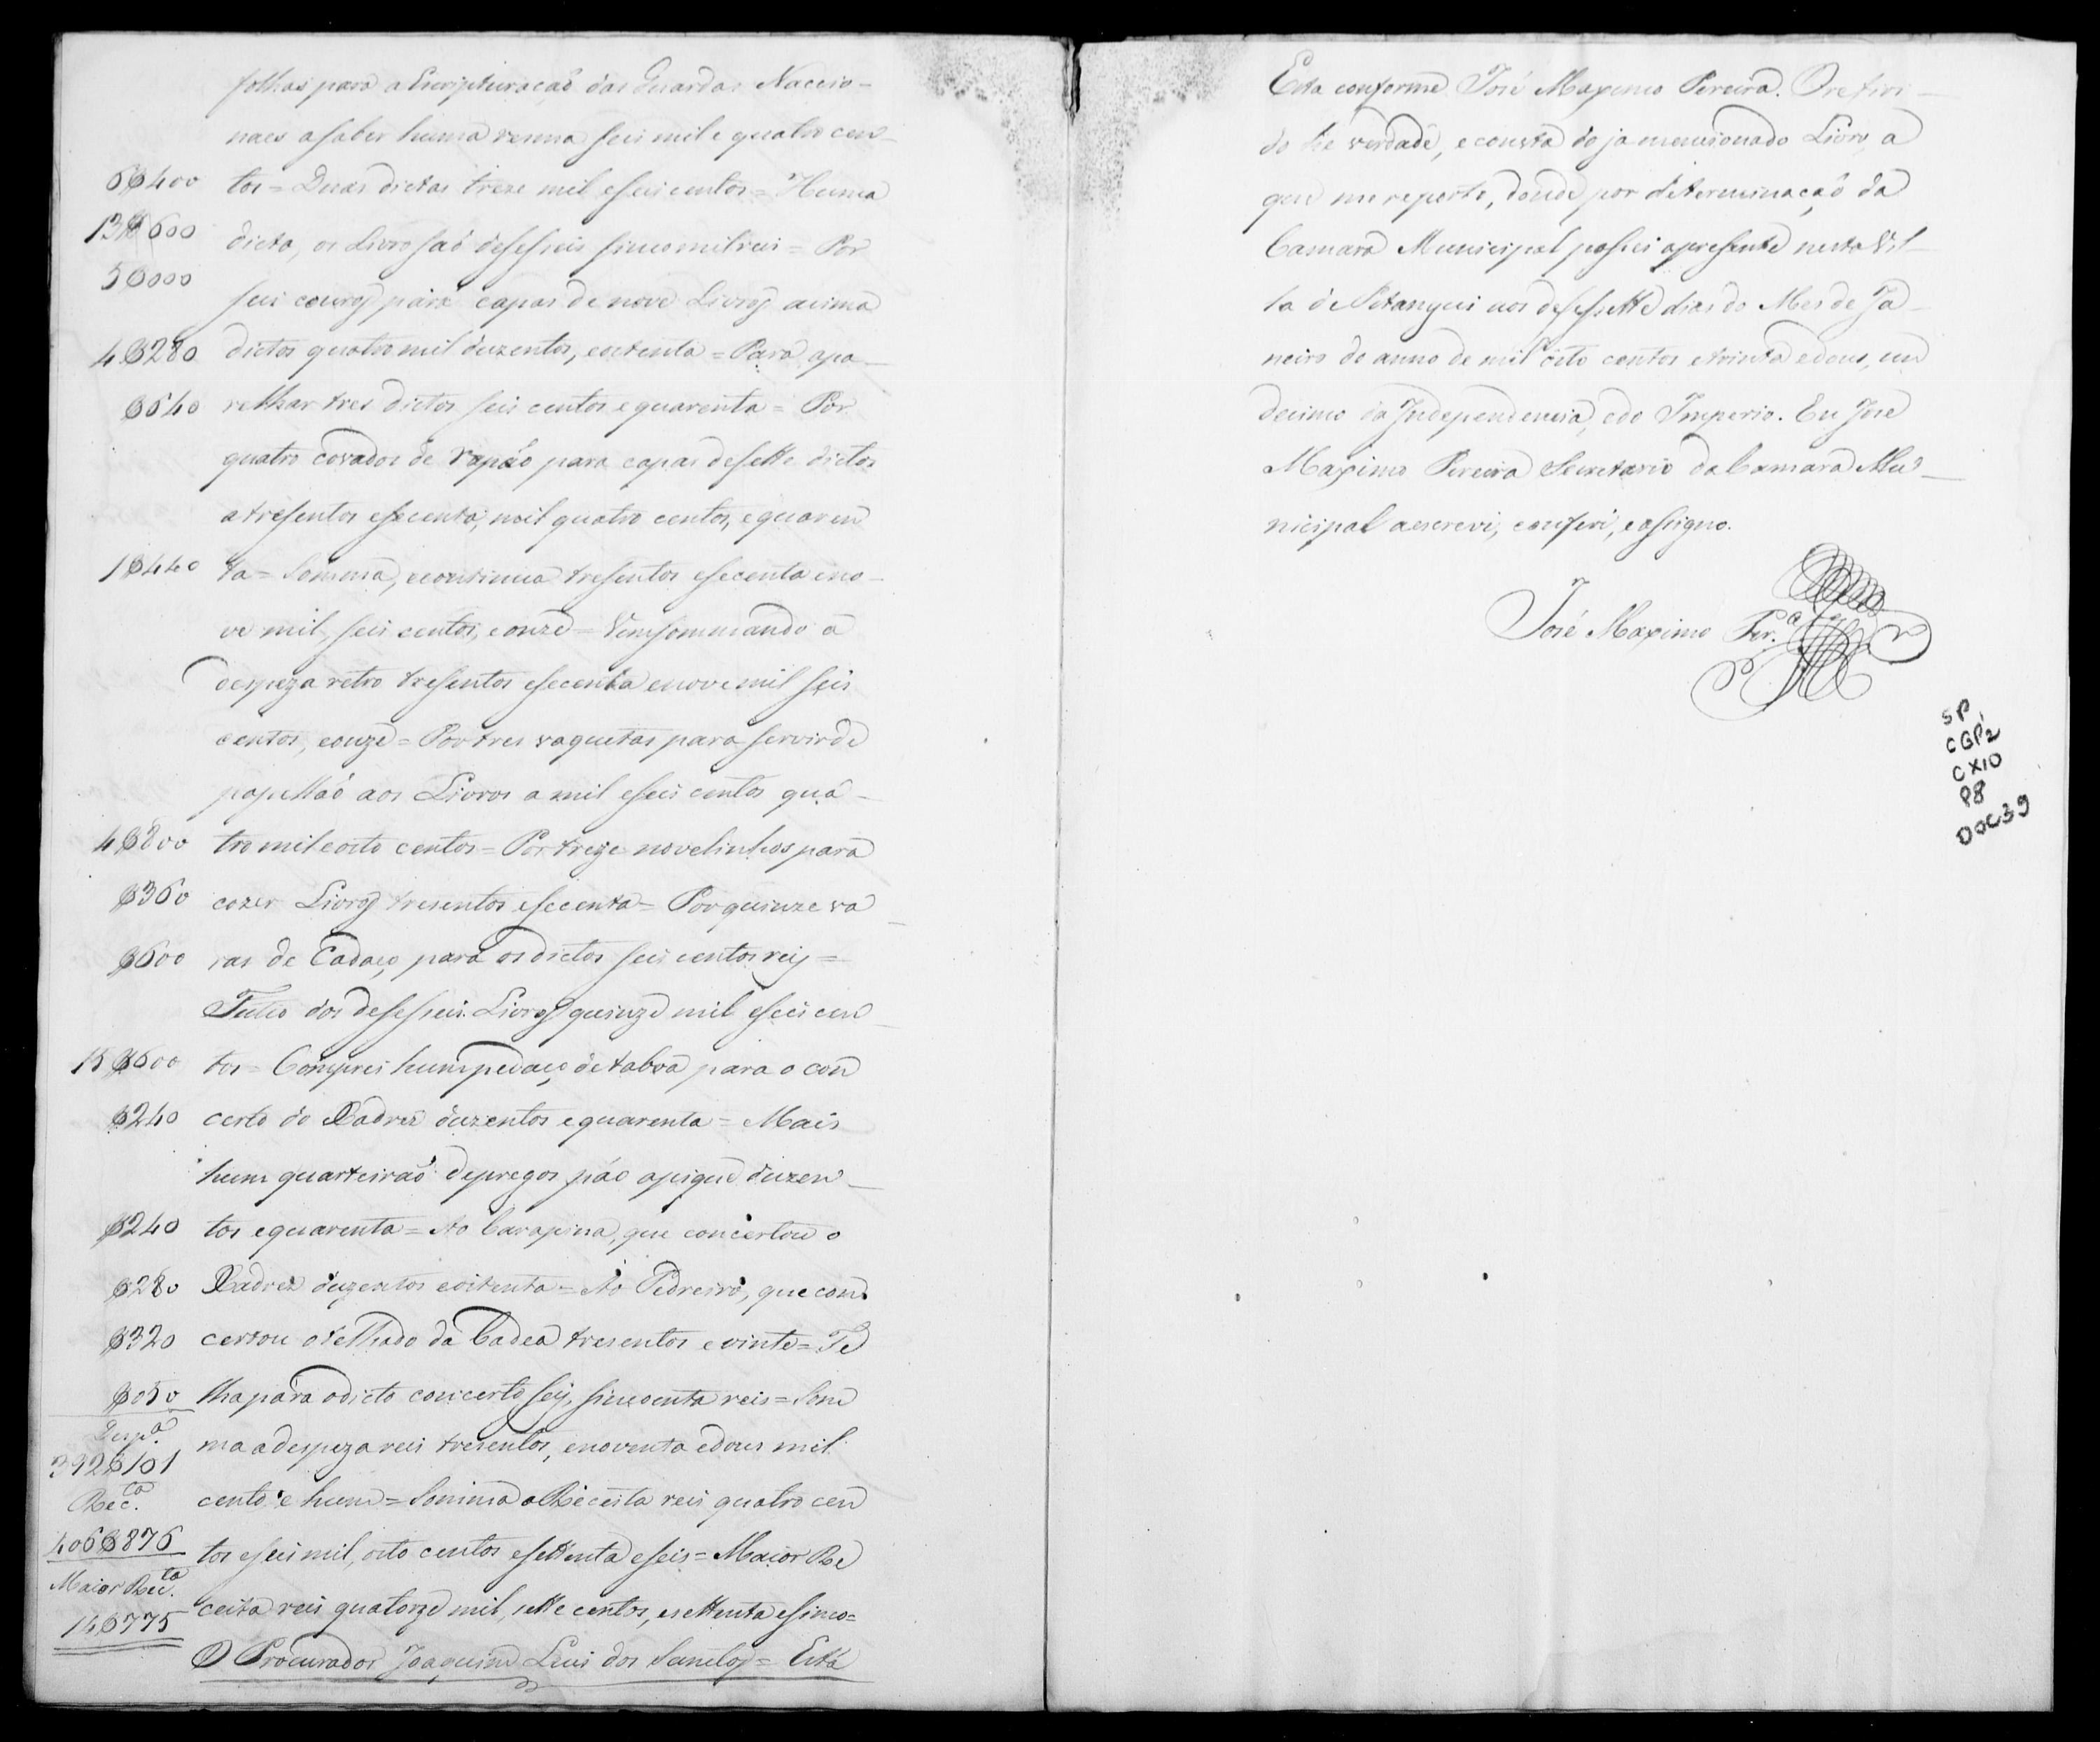 folhas para a Escripturação das Guardas Naccio-
naes a saber huma resma seis mil e quatro cen-
6$400 tos = Duas dictas treze mil e seis centos = Huma
13$600 dicta, os Livros são desesseis sinco mil reis = Por
5$000
seis couros para capas de nove Livros acima
4$280 dictos quatro mil duzentos, e oitenta = Para apa-
$640 relhar tres dictos seis centos e quarenta = Por
quatro covados de para capas de sette dictos
a tresentos e secenta, mil quatro centos, e quaren
1$440 ta = Somma, e continua tresentos e secenta e no-
ve mil, seis centos, e onze = Vem sommando a
despeza retro tresentos e secenta e nove mil seis
centos, e onze = Por tres vaquetas para servir de
papellão aos Livros a mil e seis centos qua-
4$800 tro mil e oito centos = Por treze novelinhos para
$360 cozer Livros tresentos e secenta = Por quinze va-
$600 ras de Cadaço para os dictos seis centos reis =
Feitio dos desesseis Livros quinze mil e seis cen-
15$600 tos = Comprei hum pedaço de taboa para o con
$240 certo do Xadrez duzentos e quarenta = Mais
hum quarteirão de pregos páo apique duzen-
$240 tos e quarenta = Ao Carapina, que concertou o
$280 Xadrez duzentos e oitenta = Ao Pedreiro, que con
$320 certou o telhado da Cadea tresentos e vinte = Te
$050 lha para o dicto concerto seis, sincoenta reis = Som
Desp.ª
ma a despeza reis tresentos, e noventa e dous mil
392$101
Rec.ta
cento e hum = Somma a Receita reis quatro cen
406$876
tos e seis mil, oito centos e settenta e seis = Maior Re
Maior Rec.ta
ceita reis quatorze mil, sette centos, e settenta e sinco =
14$775
O Procurador Joaquim Luis dos Santos = Está
Esta conforme José Maximo Pereira. O referi-
do he verdade, e consta do ja mencionado Livro, a
que me reporto, donde por determinação da
Camara Municipal passei a presente nesta Vil-
la de Pitangui aos desessette dias do Mes de Ja-
neiro do anno de mil oito centos e trinta e dous, un
decimo da Independencia, e do Imperio. Eu José
Maximo Pereira Secretario da Camara Mu-
nicipal a escrevi, conferi, e assigno.
José Maximo Per.ª
SP,
CGP2
CX10
P8
DOC39